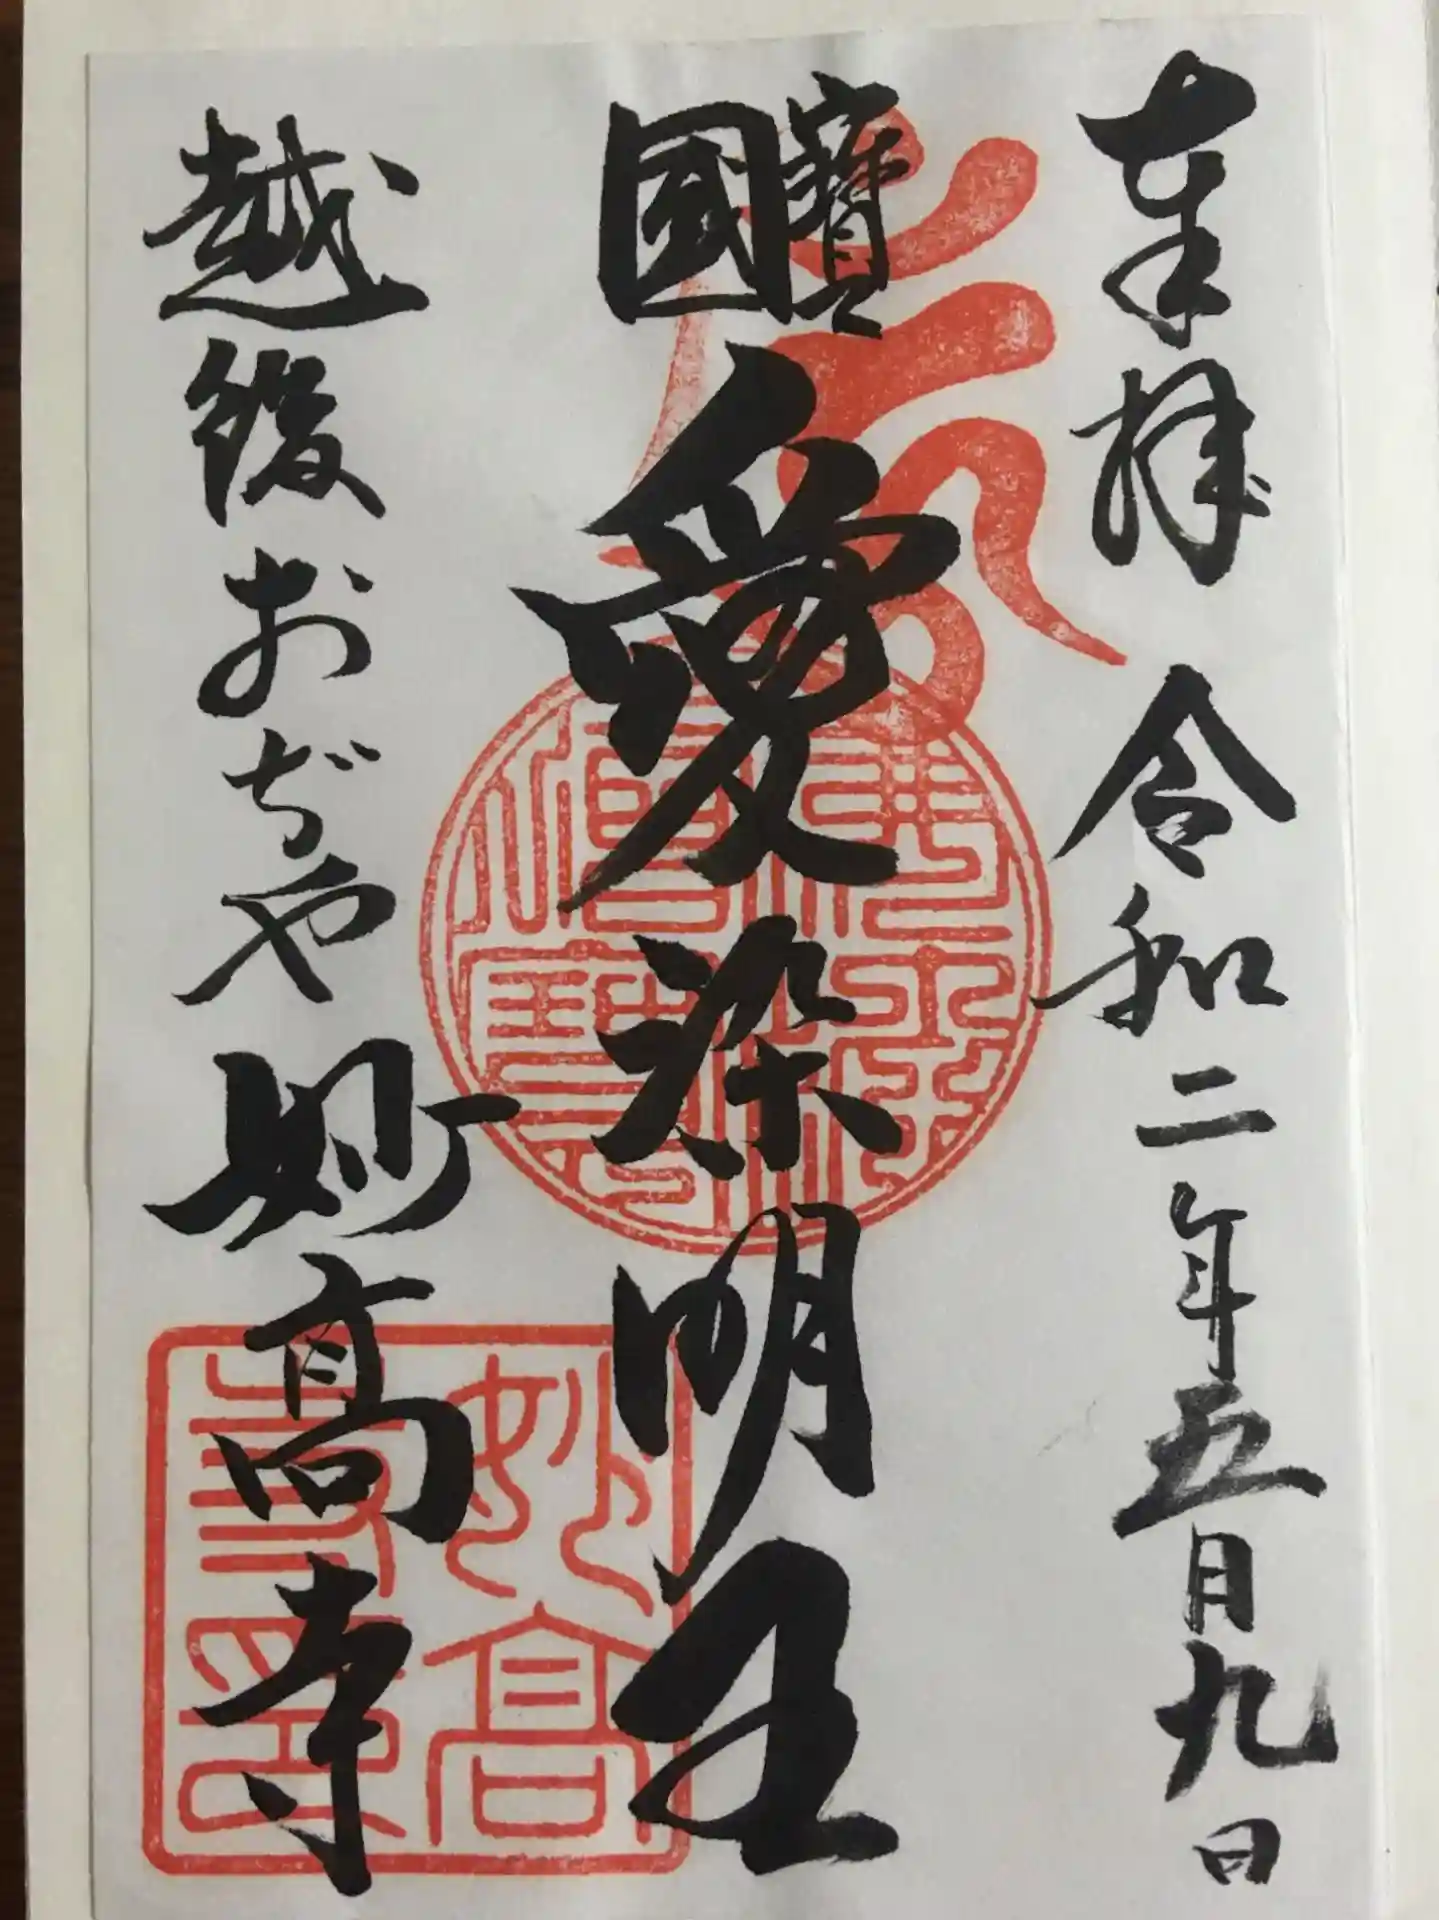 奉拝 令和二年五月九日
國寶
愛染明王
越後おぢや 妙高寺
妙高寺印